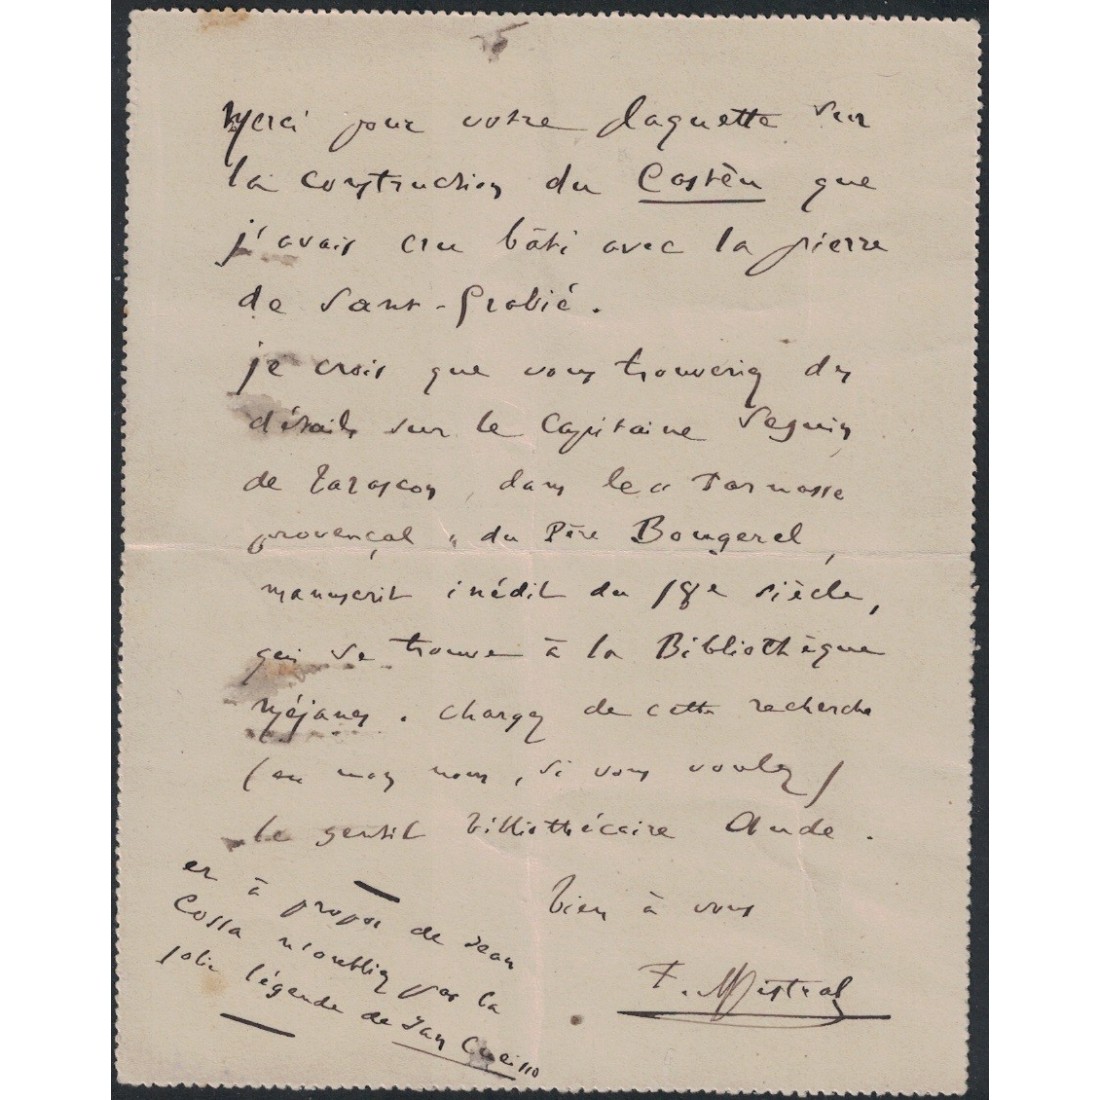 Merci pour votre plaquette sur
la construction du Castèu que
j'avais cru bâti avec la pierre
de Sant-Grabié.
je crois que vous trouverez des
détails sur le Capitaine Seguin
de Tarascon, dans le « Parnasse
provençal » du Père Bougerel,
manuscrit inédit du 18e siècle,
qui se trouve à la Bibliothèque
Méjanes. chargez de cette recherche
(en mon nom, si vous voulez)
le gentil bibliothécaire Aude.
bien à vous
F. Mistral
et à propos de Jean
Cossa n'oubliez pas la
jolie légende de Jan